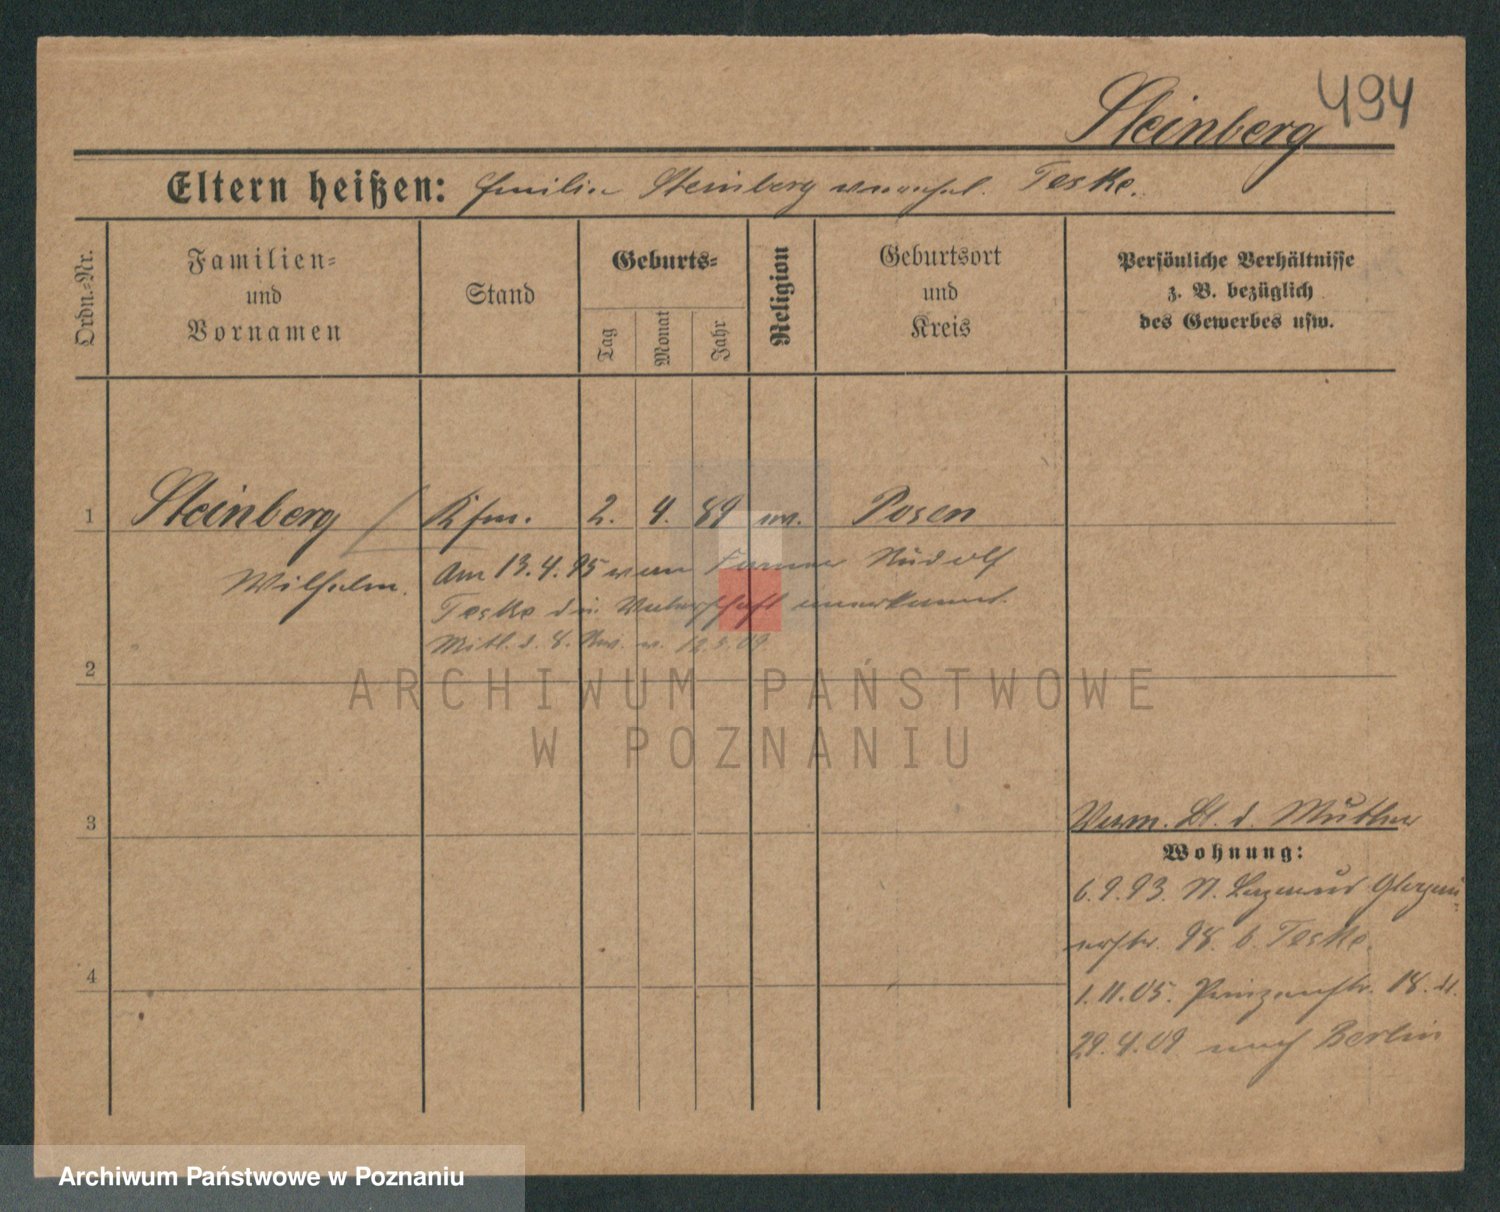 494
Steinberg
Eltern heißen: Emilie Steinberg verehel. Teske.
Ordn.-Nr.
Familien-
und
Vornamen
Stand
Geburts-
Tag
Monat
Jahr
Religion
Geburtsort
und
Kreis
Persönliche Verhältnisse
z. B. bezüglich
des Gewerbes usw.
1 Steinberg Kfm. 2. 4. 89 ev. Posen
Wilhelm.
Am 13.4.95 vom Rudolf
Teske die Vaterschaft anerkannt.
Mitt. d. 8. Rev. v. 12.5.09.
2
ARCHIWUM PAŃSTWOWE
W POZNANIU
3
Verm. Bl. d. Mutter
Wohnung:
6.9.93. St. Lazarus Glogau
erstr. 98. b. Teske.
4
1.11.05. Prinzenstr. 18. dt.
29.4.09 nach Berlin
Archiwum Państwowe w Poznaniu